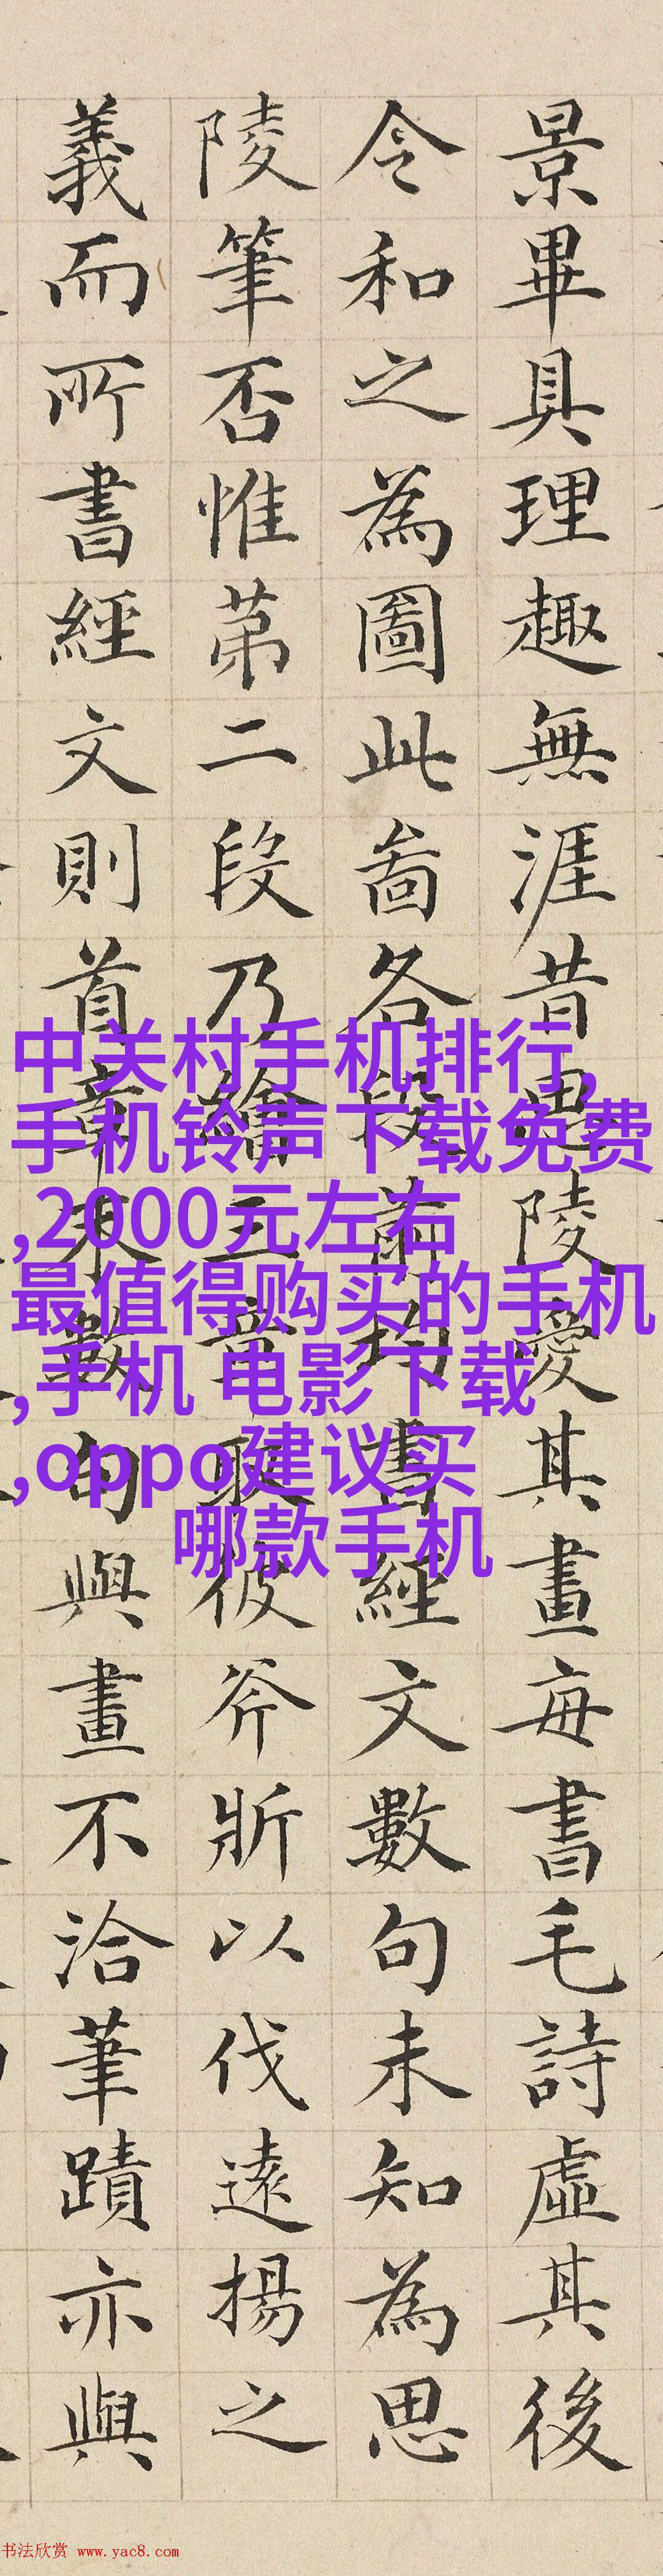 景畢具理趣無涯昔思陵愛其畫每書毛詩虛其後
令和之為圖此啚各段前均書經文數句未知為思
陵筆否惟苐二段乃繪三章取彼斧斨以伐遠揚之
義而所書經文則首章末數句與畫不洽筆蹟亦與
中关村手机排行,
手机铃声下载免费
,2000元左右
最值得购买的手机
,手机 电影下载
,oppo建议买
哪款手机
书法欣赏 www.yac8.com